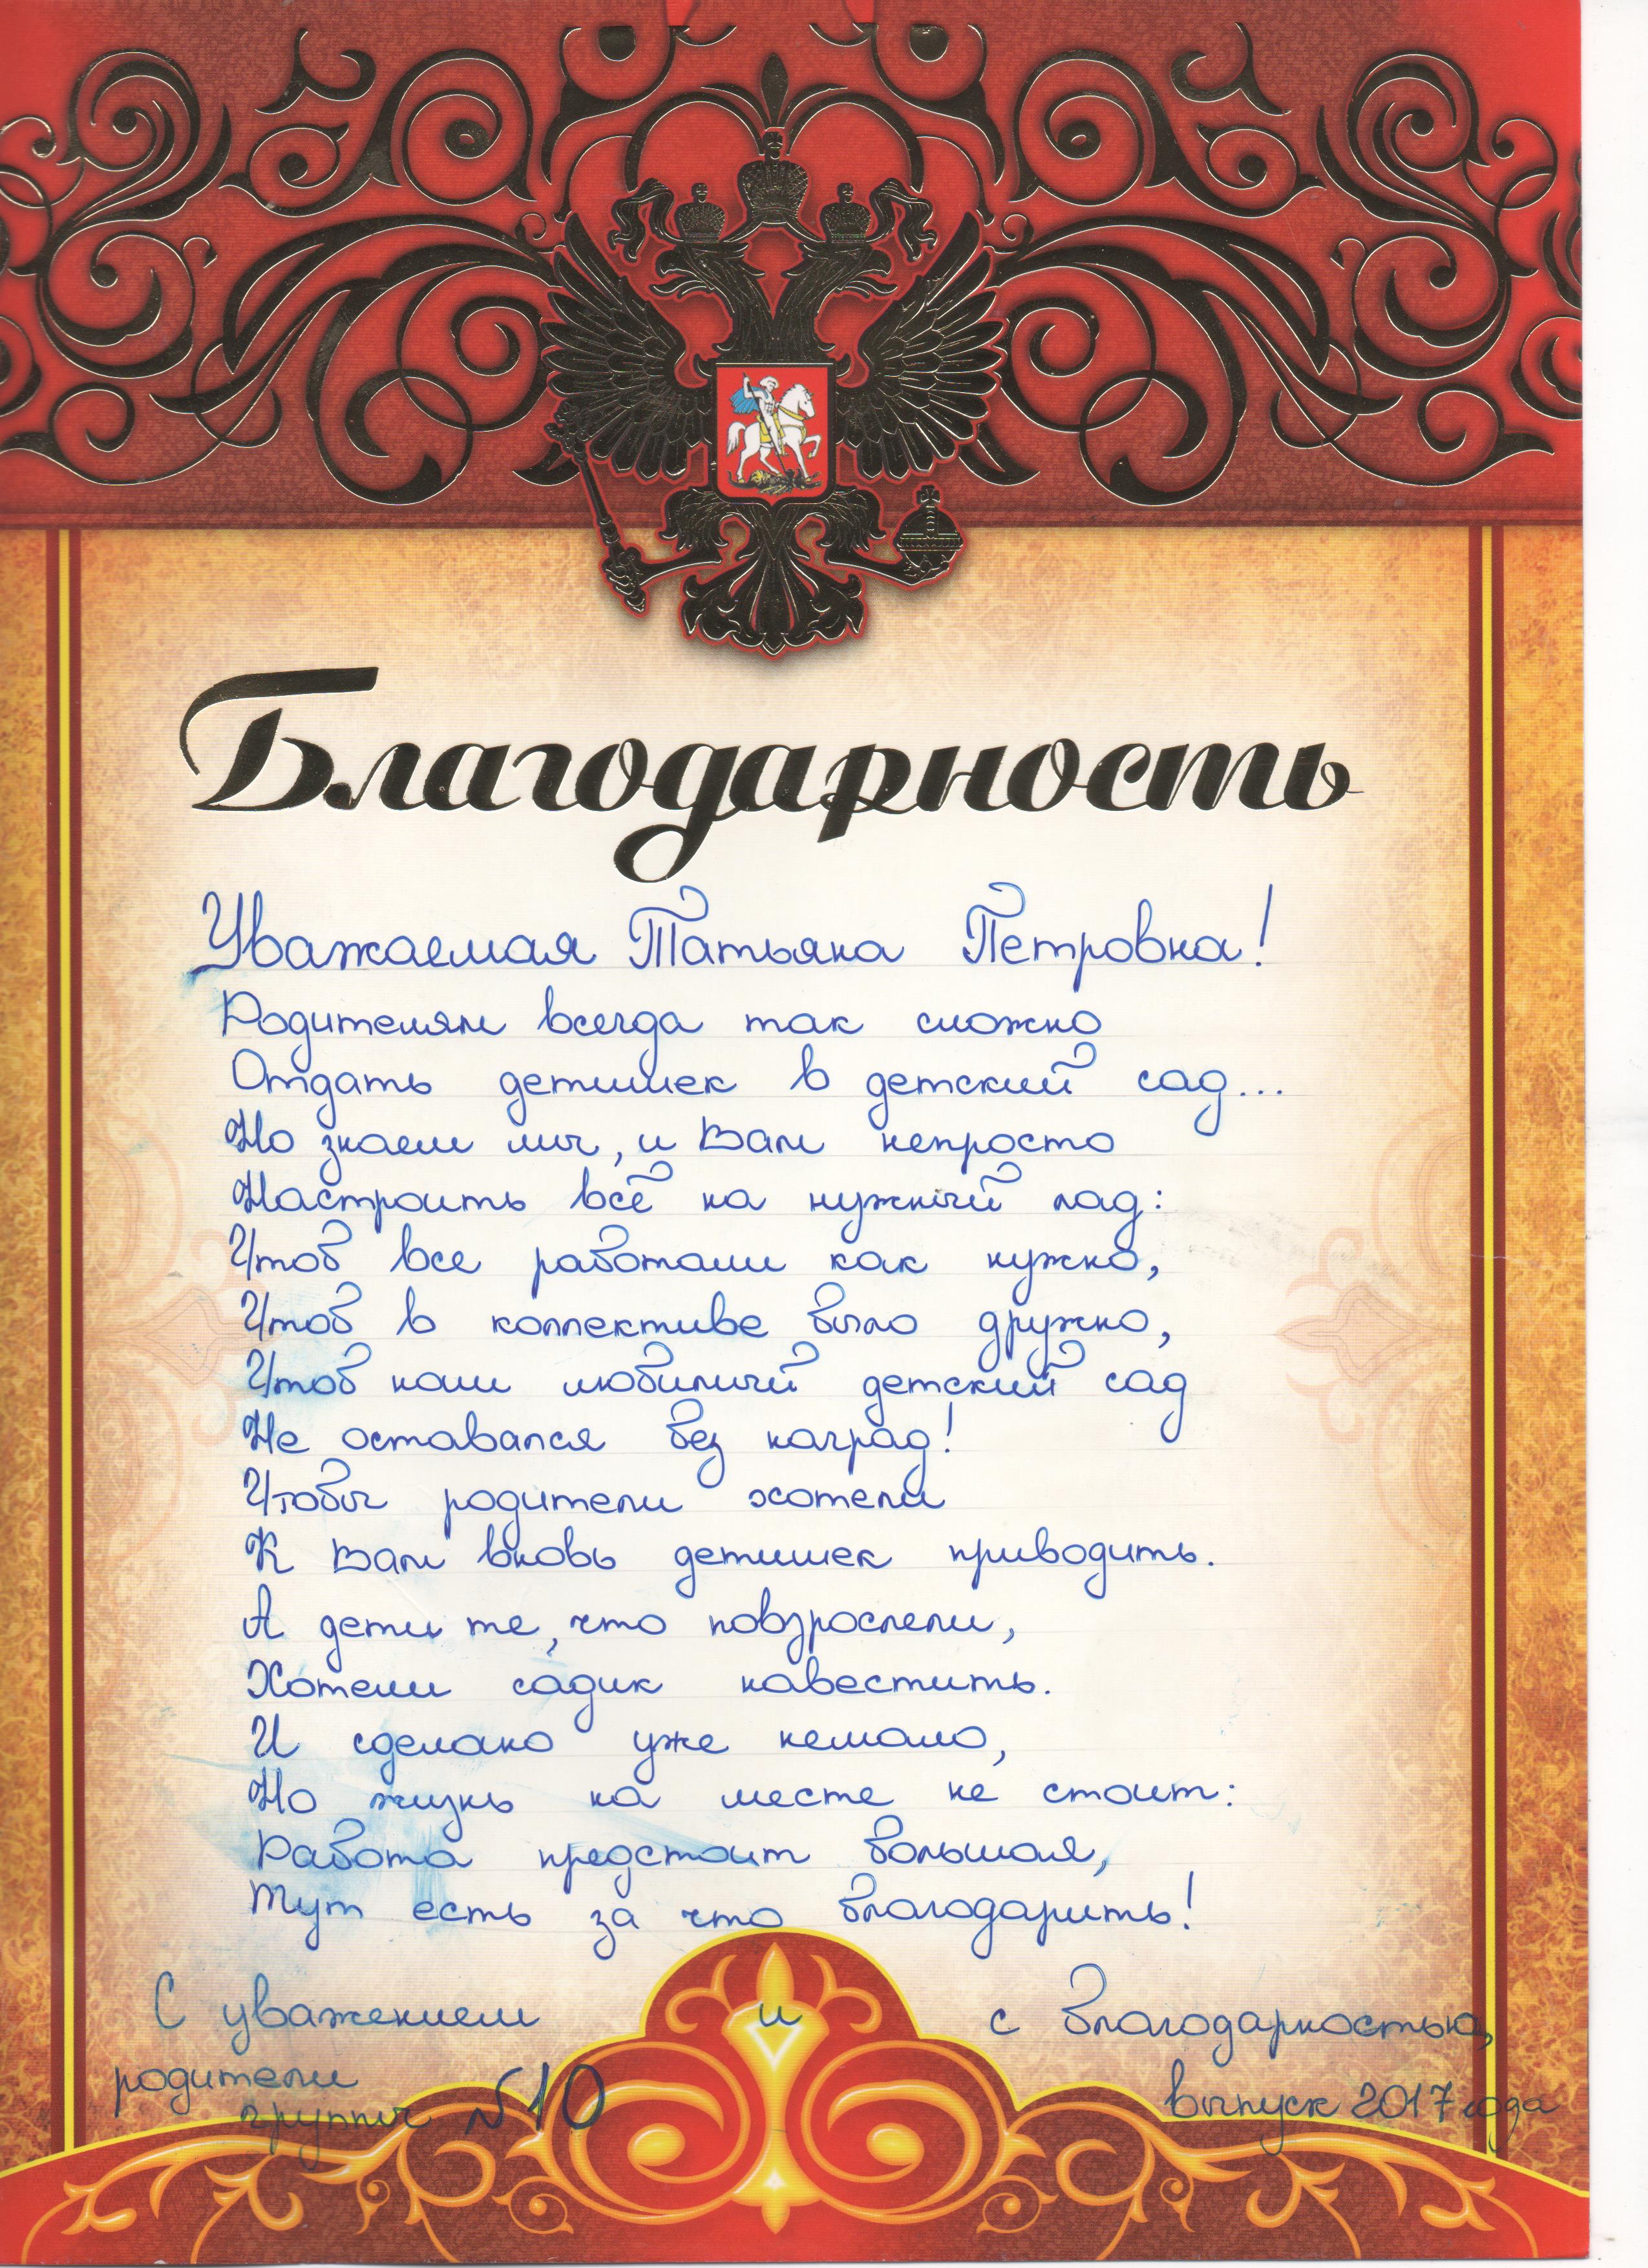 Благодарность
Уважаемая Татьяна Петровна!
Родителям всегда так сложно
Отдать детишек в детский сад...
Но знаем мы, и Вам непросто
Настроить всё на нужный лад:
Чтоб все работали как нужно,
Чтоб в коллективе было дружно,
Чтоб наш любимый детский сад
Не оставался без наград!
Чтобы родители хотели
К Вам вновь детишек приводить.
А дети те, что повзрослели,
Хотели садик навестить.
И сделано уже немало,
Но жизнь на месте не стоит:
Работа предстоит большая,
Тут есть за что благодарить!
С уважением и с благодарностью,
родители
группы №10 выпуск 2017 года